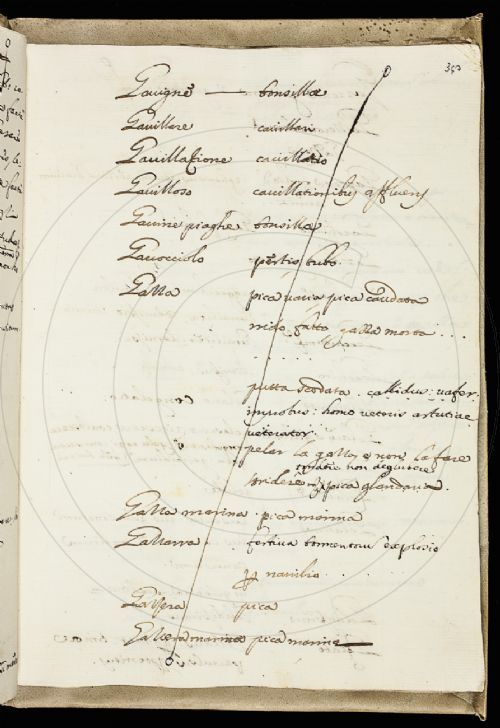 350
Gavigne — tonsillæ
Gavillare cavillari
Gavillazione cavillatio
Gavilloso cavillationibus affluens
Gavine piaghe tonsillæ
Gavocciolo pestis bubo
Gazza pica varia pica caudata
nido fatto gazza morta . . .
. . . . .
putta scodata . callidus : vafer
homo veteris astutiae
veterator
pelar la gazza e non la fare
non deglubere
stridere pica glandaria .
Gazza marina pica marina
Gazzarra festiva tormentorum explosio
navilio . .
Gazzera pica
Gazzera marina pica marina —